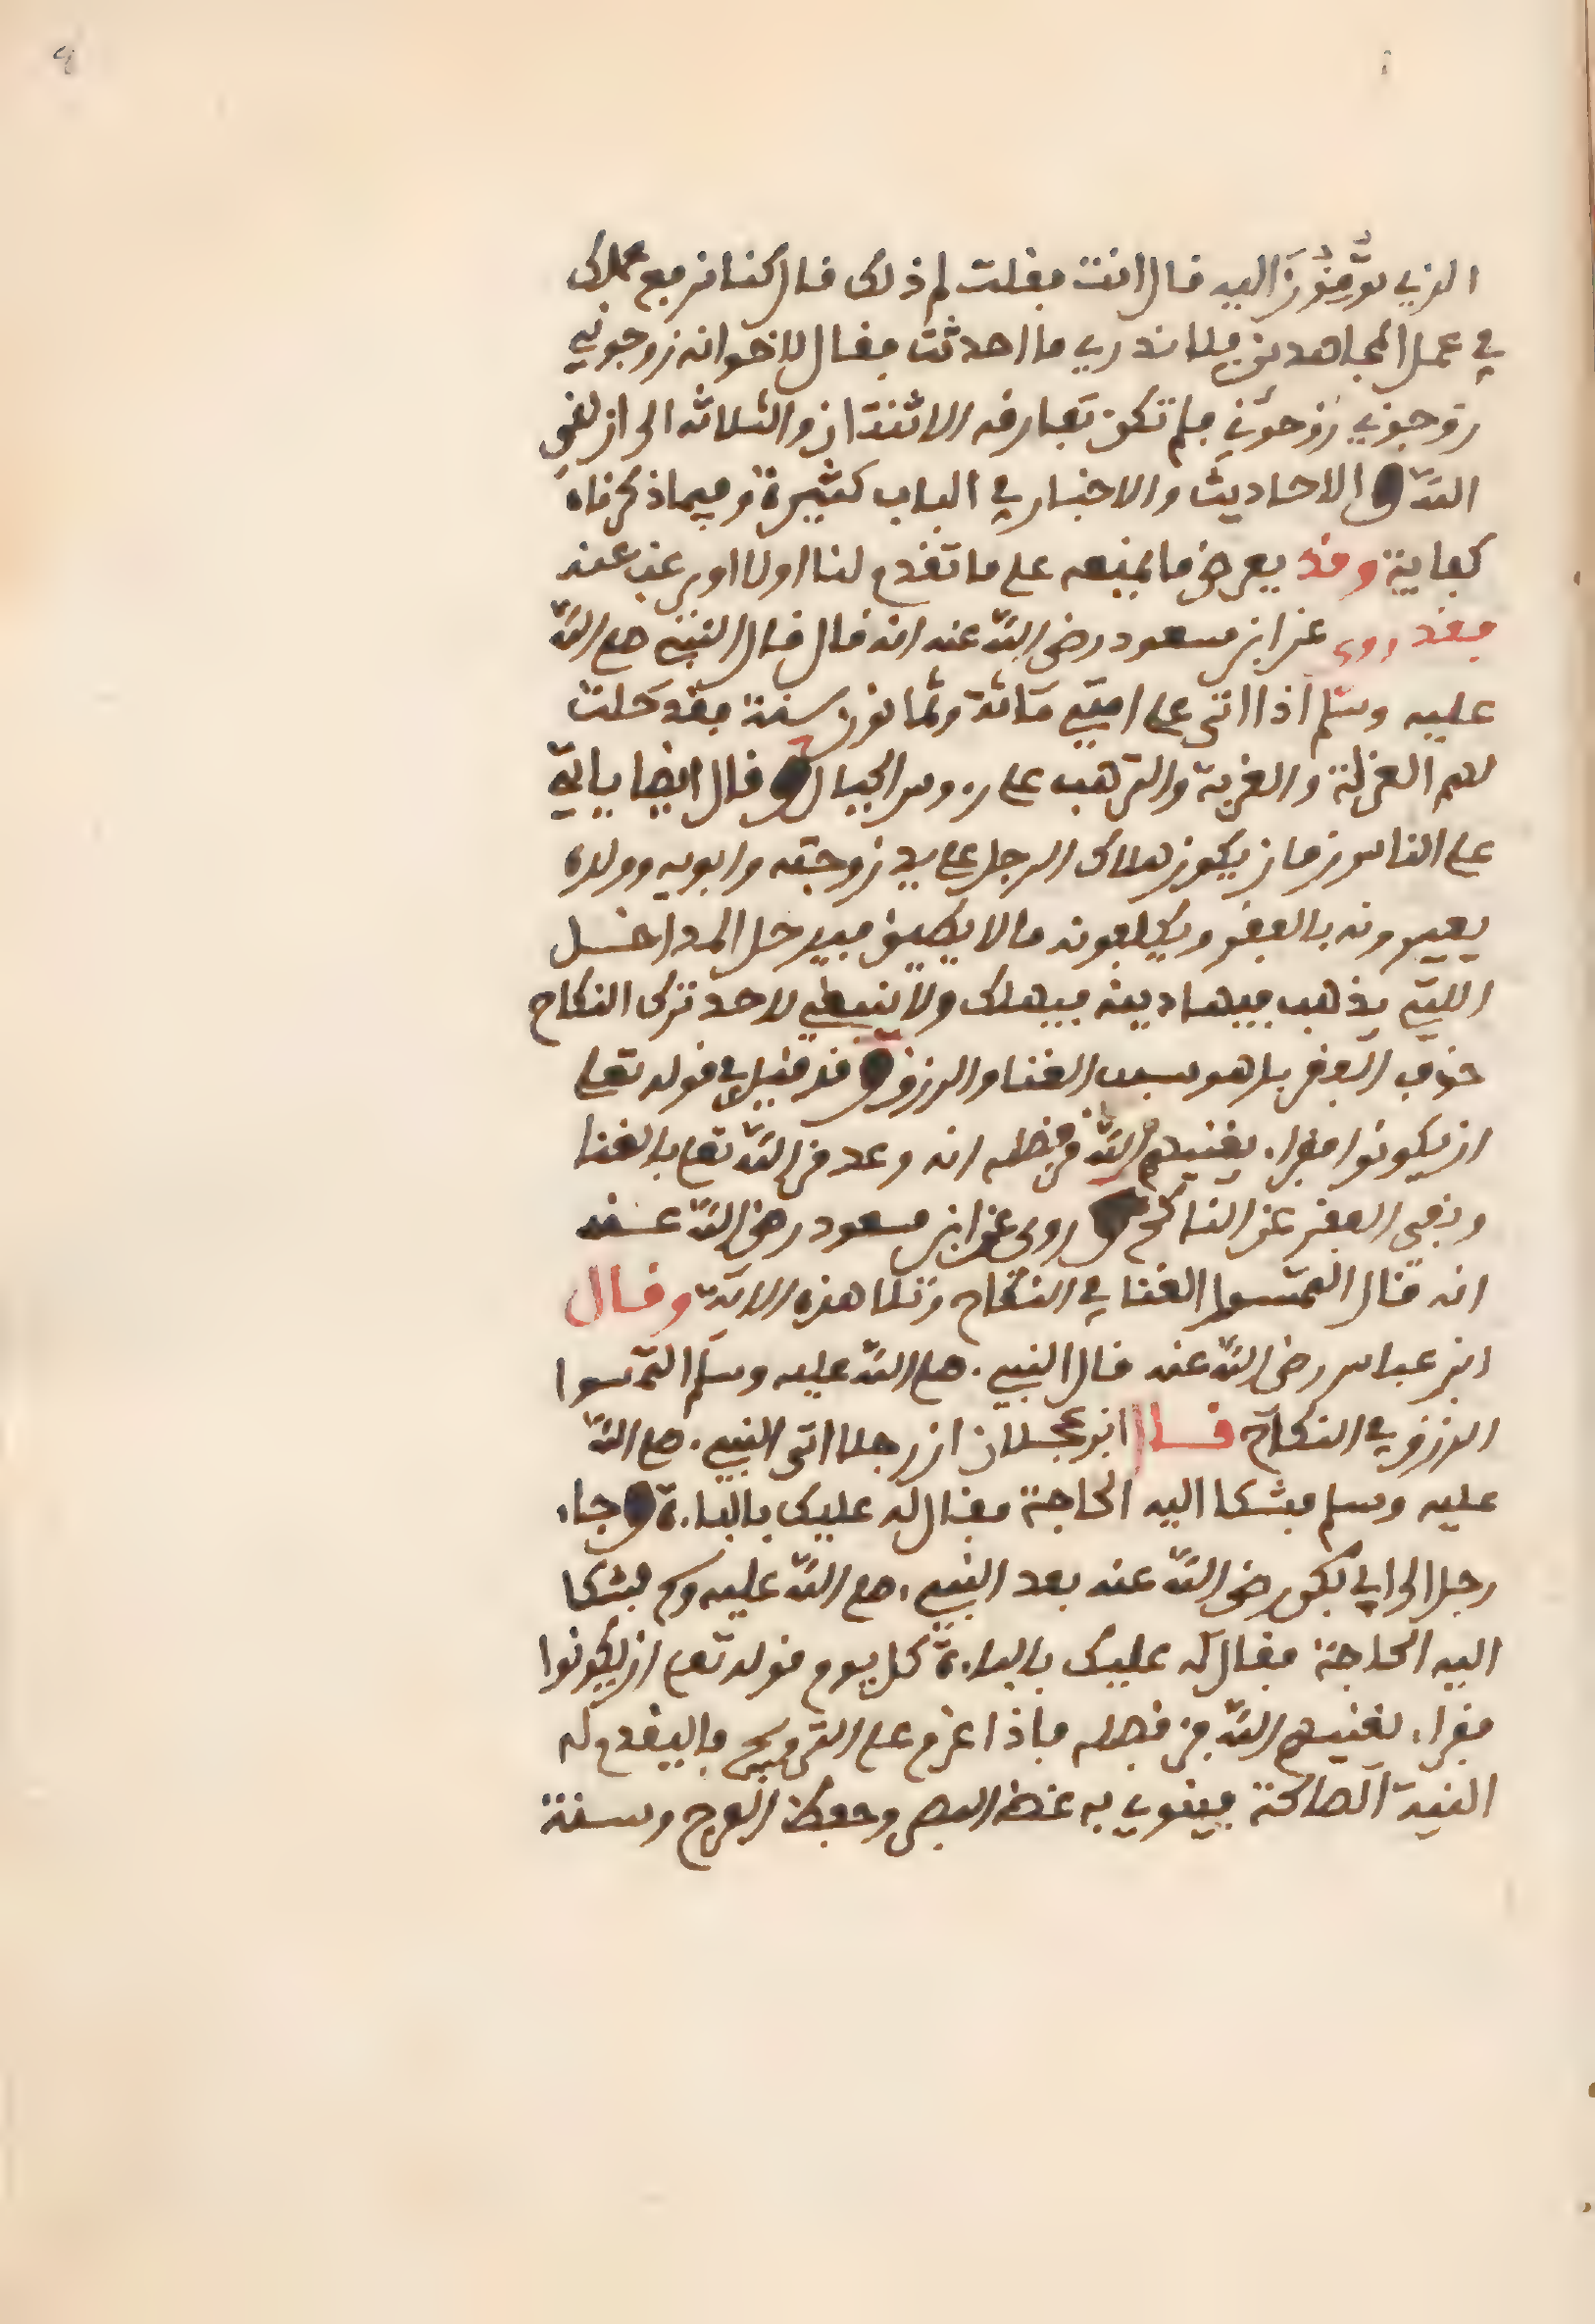 الذي تومون اليه قال انت فقلت لم ذلك قال كنا نرفع عملك
في عمل المجاهدين فلا ندري ما احدثت فقال لاخوانه زوجوني
زوجوني زوجوني فلم تكن تفارقه الاثنتان والثلاثة الى ان لقي
الله والاحاديث والاخبار في الباب كثيرة وفيما ذكرناه
كفاية وقد يعرض ما يمنعه على ما تقدم لنا اولا او يرغب عنه
فقد روى عن ابن مسعود رضي الله عنه انه قال قال النبي صلى الله
عليه وسلم اذا اتى على امتي مائة وثمانون سنة فقد حلت
لهم العزلة والغربة والترهب على رءوس الجبال وقال ايضا ياتي
على الناس زمان يكون هلاك الرجل على يد زوجته وابويه وولده
يعيرونه بالفقر ويكلفونه ما لا يطيق فيدخل المداخل
اللتي يذهب فيها دينه فيهلك ولا ينبغي لاحد ترك النكاح
خوف الفقر بل هو سبب الغنا والرزق وقد قيل في قوله تعلى
ان يكونوا فقراء يغنيهم الله من فضله انه وعد من الله تعلى بالغنا
ونفي الفقر عن الناكح وروى عن ابن مسعود رضي الله عنه
انه قال التمسوا الغنا في النكاح وتلا هذه الاية وقال
ابن عباس رضي الله عنه قال النبي صلى الله عليه وسلم التمسوا
الرزق في النكاح قال ابن عجلان ان رجلا اتى النبي صلى الله
عليه وسلم فشكا اليه الحاجة فقال له عليك بالباءة وجاء
رجل الى ابي بكر رضي الله عنه بعد النبي صلى الله عليه وسلم فشكا
اليه الحاجة فقال له عليك بالباءة كل يوم قوله تعلى ان يكونوا
فقراء يغنيهم الله من فضله فاذا عزم على التزويج فاليقدم له
النية الصالحة فينوي به غض البصر وحفظ الفرج وسنة